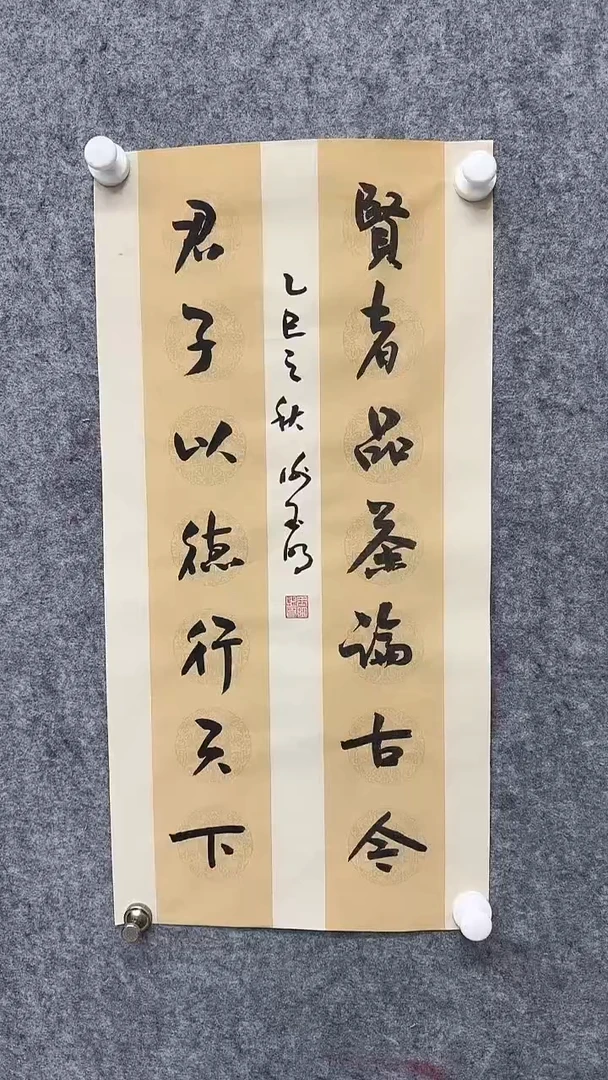 賢者品茶論古今
君子以德行天下
乙巳之秋
玉明